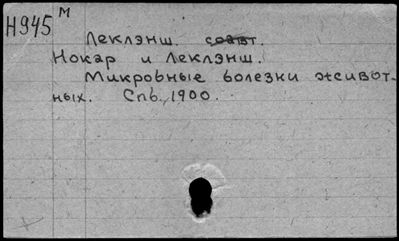 Н945 м
Леклэнш. соавт.
Нокар и Леклэнш.
Микробные болезни живот-
ных. Спб, 1900.